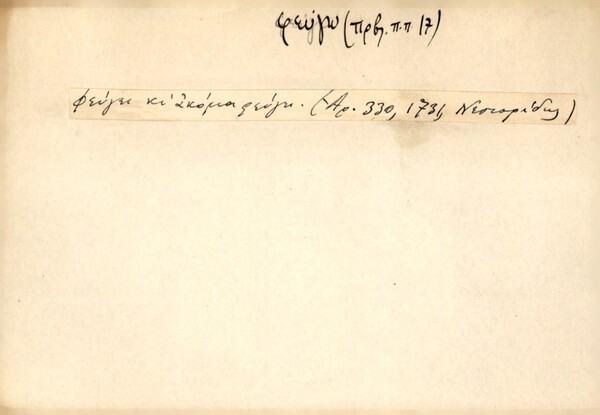 φεύγω (πρβλ. π.π. 17)
Φεύγει κι ἀκόμα φεύγει. (Ἀρ. 330, 1731, Νεστορίδης)